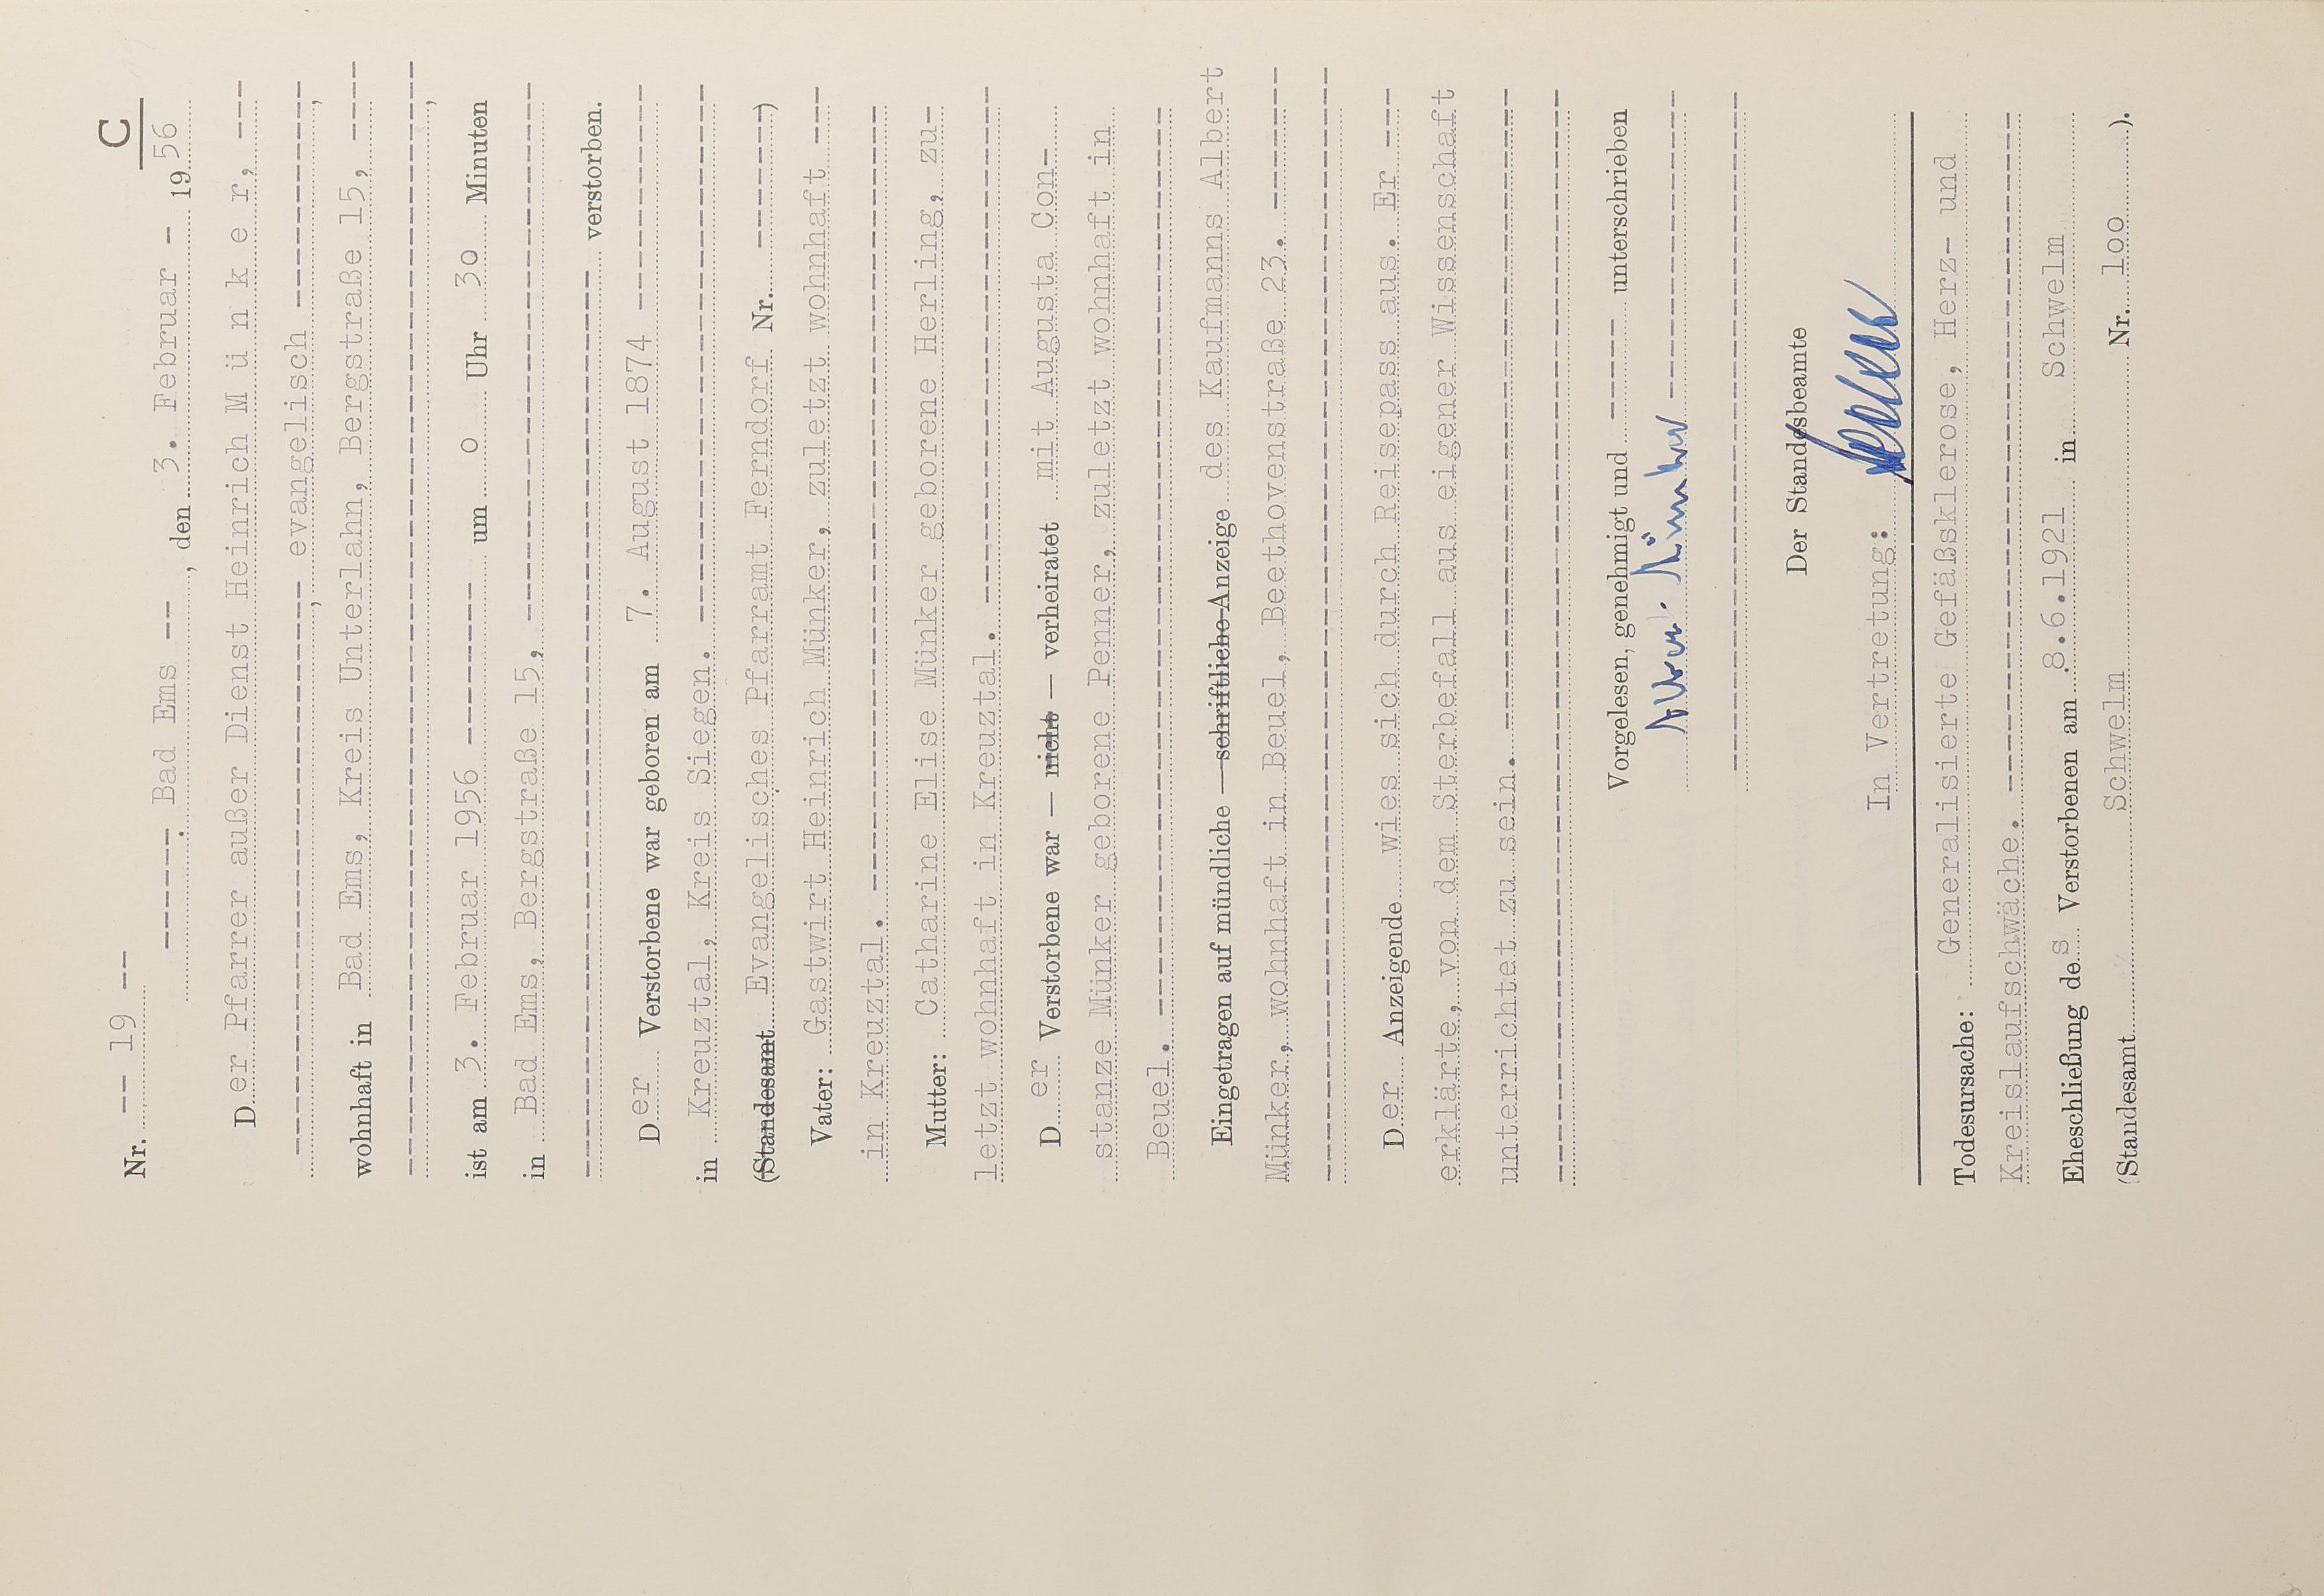 C
Nr. -- 19 --
------. Bad Ems --, den 3. Februar - 1956
Der Pfarrer außer Dienst Heinrich M ü n k e r, ---
------------------------------, evangelisch ------------,
wohnhaft in Bad Ems, Kreis Unterlahn, Bergstraße 15, ----
------------------------------------------------------------,
ist am 3. Februar 1956 -------- um o Uhr 3o Minuten
in Bad Ems, Bergstraße 15, ------------------------------
------------------------------------------------ verstorben.
Der Verstorbene war geboren am 7. August 1874 ------------
in Kreuztal, Kreis Siegen. ------------------------------
(Standesamt Evangelisches Pfarramt Ferndorf Nr. -------)
Vater: Gastwirt Heinrich Münker, zuletzt wohnhaft ---
in Kreuztal. ------------------------------------------
Mutter: Catharine Elise Münker geborene Herling, zu-
letzt wohnhaft in Kreuztal. ----------------------------
Der Verstorbene war — nicht — verheiratet mit Augusta Con-
stanze Münker geborene Penner, zuletzt wohnhaft in
Beuel. --------------------------------------------------
Eingetragen auf mündliche — schriftliche Anzeige des Kaufmanns Albert
Münker, wohnhaft in Beuel, Beethovenstraße 23. --------
------------------------------------------------------------
Der Anzeigende wies sich durch Reisepass aus. Er ---
erklärte, von dem Sterbefall aus eigener Wissenschaft
unterrichtet zu sein. ----------------------------------
------------------------------------------------------------
Vorgelesen, genehmigt und ------ unterschrieben
Albert Münker ----------------
--------------------------------------
Der Standesbeamte
In Vertretung:
Todesursache: Generalisierte Gefäßsklerose, Herz- und
Kreislaufschwäche. ------------------------------------
Eheschließung des Verstorbenen am 8.6.1921 in Schwelm
(Standesamt Schwelm Nr. 1oo ).